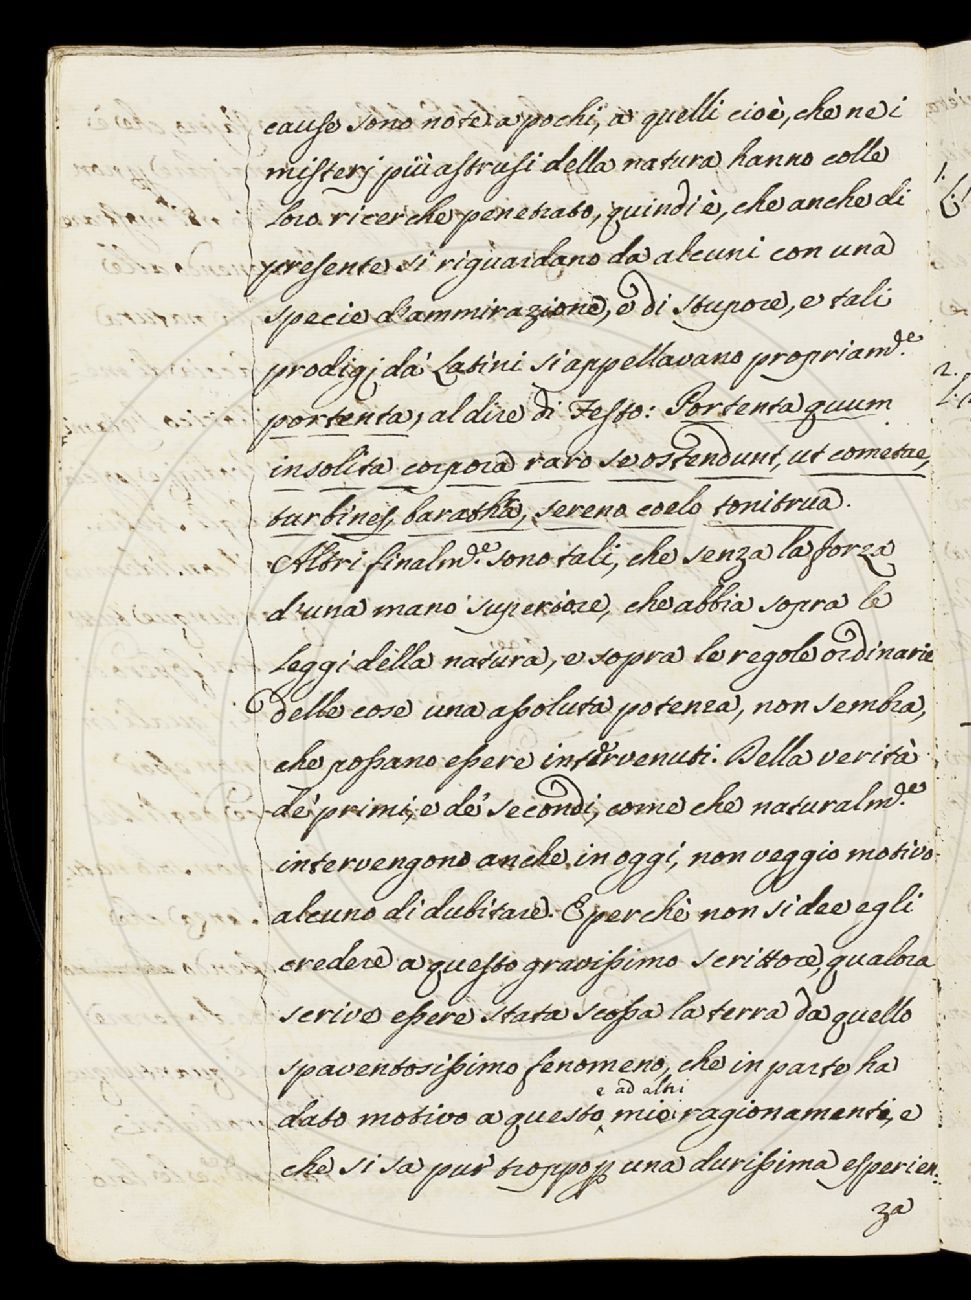 cause sono note a pochi, a quelli cioè, che ne i
misterj più astrusi della natura hanno colle
loro ricerche penetrato, quindi è, che anche di
presente si riguardano da alcuni con una
specie d'ammirazione, e di stupore, e tali
prodigj da' Latini si appellavano propriam.de
portenta, al dire di Festo: Portenta quum
insolita corpora raro se ostendunt, ut cometae,
turbines, barathra, sereno coelo tonitrua.
Altri finalm.de sono tali, che senza la forza
d'una mano superiore, che abbia sopra le
leggi della natura, e sopra le regole ordinarie
delle cose una assoluta potenza, non sembra,
che possano essere intervenuti. Della verità
de' primi, e de' secondi, come che naturalm.de
intervengono anche in oggi, non veggio motivo
alcuno di dubitare. E perchè non si dee egli
credere a questo gravissimo scrittore, qualora
scrive essere stata scossa la terra da quello
spaventosissimo fenomeno, che in parte ha
e ad altri
dato motivo a questo mio ragionamenti, e
che si sa pur troppo una durissima esperien:
za
1.
2.